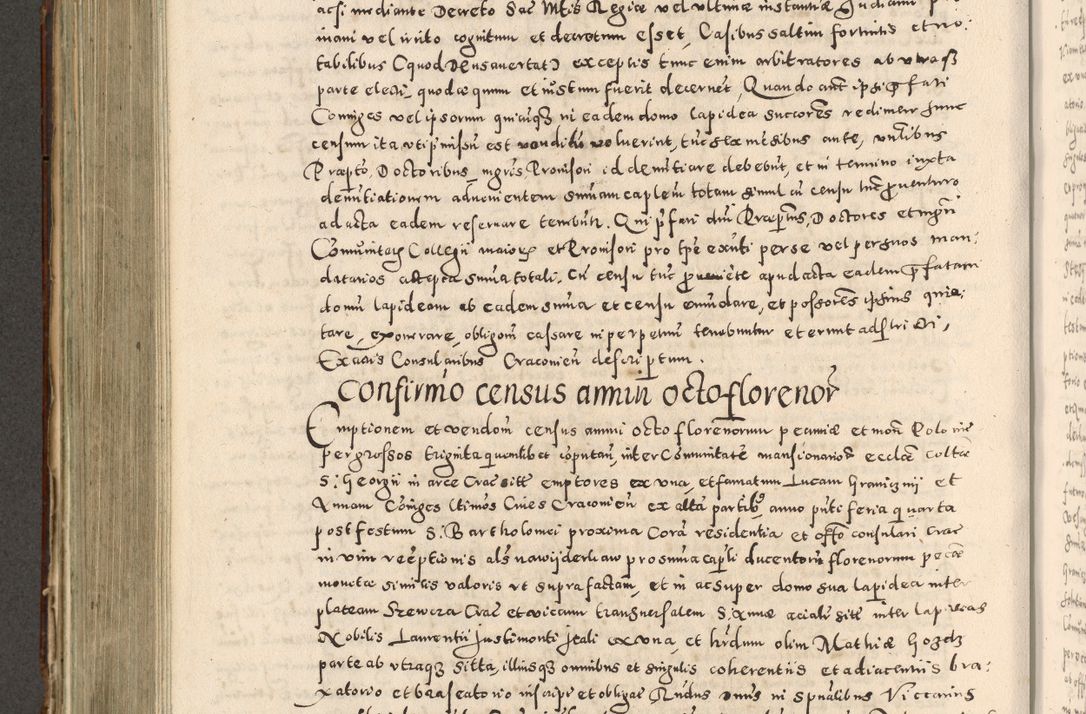 acsi mediante Decreto Sac Mtis Regiæ vel ultimæ instantiæ Judiciari
mani vel irrito cognitum et decretum esset, Casibus saltim fortuitis et no-
tabilibus (quod Deus avertat) exceptis tunc enim arbitratores ab utraq3
parte electi, quod æquum et iustum fuerit decernet, Quando aut ipsi p̄fati
Coniuges vel ipsorum quicunq3 in eadem domo lapidea succores redimere hunc
censum ita uti p̄missum est venditū voluerint, tūc sex mēsibus ante,
Præpto, Doctoribus, mgris, Provisori id denūtiare debebūt, et in termino iuxta
denūtiationem advenientem summam caplem totam simul cū censu tūc proventuro
ad acta eadem reservare tenebūtr. Qui p̄fati dni Præptus, Doctores et mgri
Comunitatis Collegii maioris et Provisori pro tpe exūti per se vel per suos man-
datarios accepta summa totali, cū censu tūc proveniēte apud acta eadem p̄fatam
domū lapideam ab eadem summa et censu emūdare, et possores ipsius quie-
tare, exonerare, obligom cassare in perpetuū tenebuntur et erunt adstricti,
Ex actis Consularibus Cracovien descriptum.
Confirmo census annui octo florenor
Emptionem et vendom census annui octo florenorum pecuniæ et mon Poloniæ
per grossos triginta quemlibet cōputan, inter Comunitatē mansionarior ecclæ coltæ
S: Georgii in arce Crac sitæ emptores ex una, et famatum Lucam Graniczny et
Annam Coniges ltimos Cives Cracovien ex altā partib9, anno pūti feria quarta
post festum S. Bartholomei proxima Corā residentia et offto consulari Crac
in vim reēptionis als nawyderkaw pro summa capli ducentorū florenorum pecæ
monetæ similis valoris ut supra factam, et in ac super domo sua lapidea inter
plateam Szewcza Crac et vicum transversalem S: Annæ aciali sitē inter lapideas
Nobilis Laurentii Justimonti Itali ex una, et hrdum olim Mathiæ
parte ab utraq3 sitta, illiusq3 omnibus et singulis coherentiis et adiacentiis bra-
xatorio et braseatorio inscripc et obligac Rndus Dnus in Spualibus Viccarius